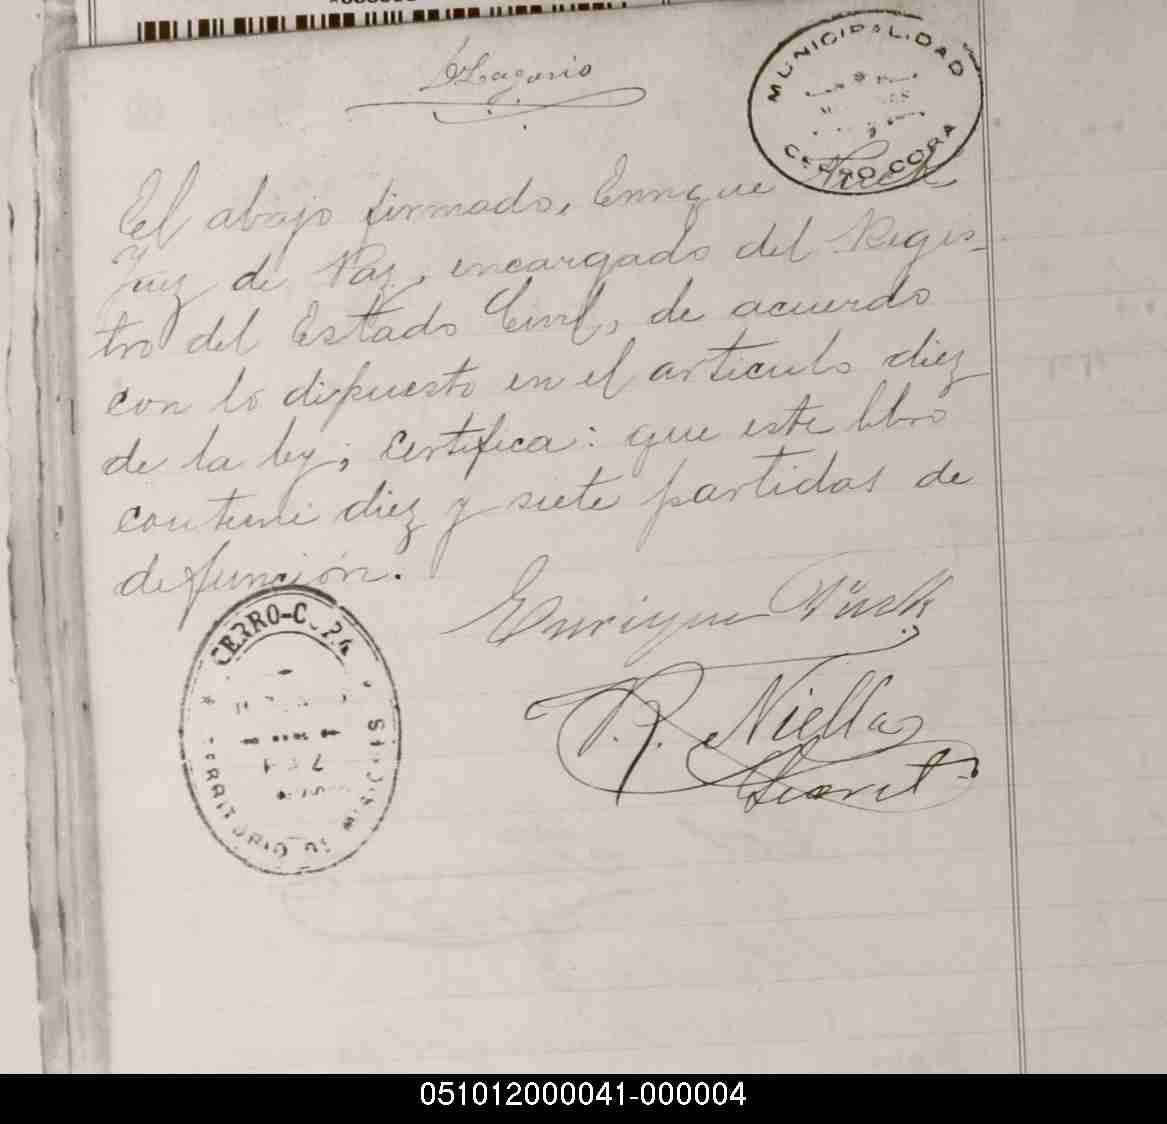 MUNICIPALIDAD
CERRO CORA
El abajo firmado, Enrique
Juez de Paz, encargado del Regis-
tro del Estado Civil, de acuerdo
con lo dispuesto en el articulo diez
de la ley, certifica: que este libro
contiene diez y siete partidas de
defunción.
Enrique
P. Niella
Secret
CERRO-CORA
TERRITORIO DE MISIONES
051012000041-000004